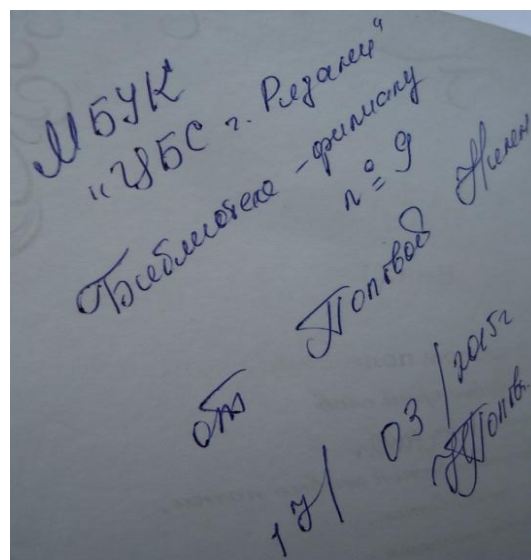 МБУК
"ЦБС г. Рязани"
Библиотеке-филиалу
n° 9
от Поповой
17/ 03/2015г